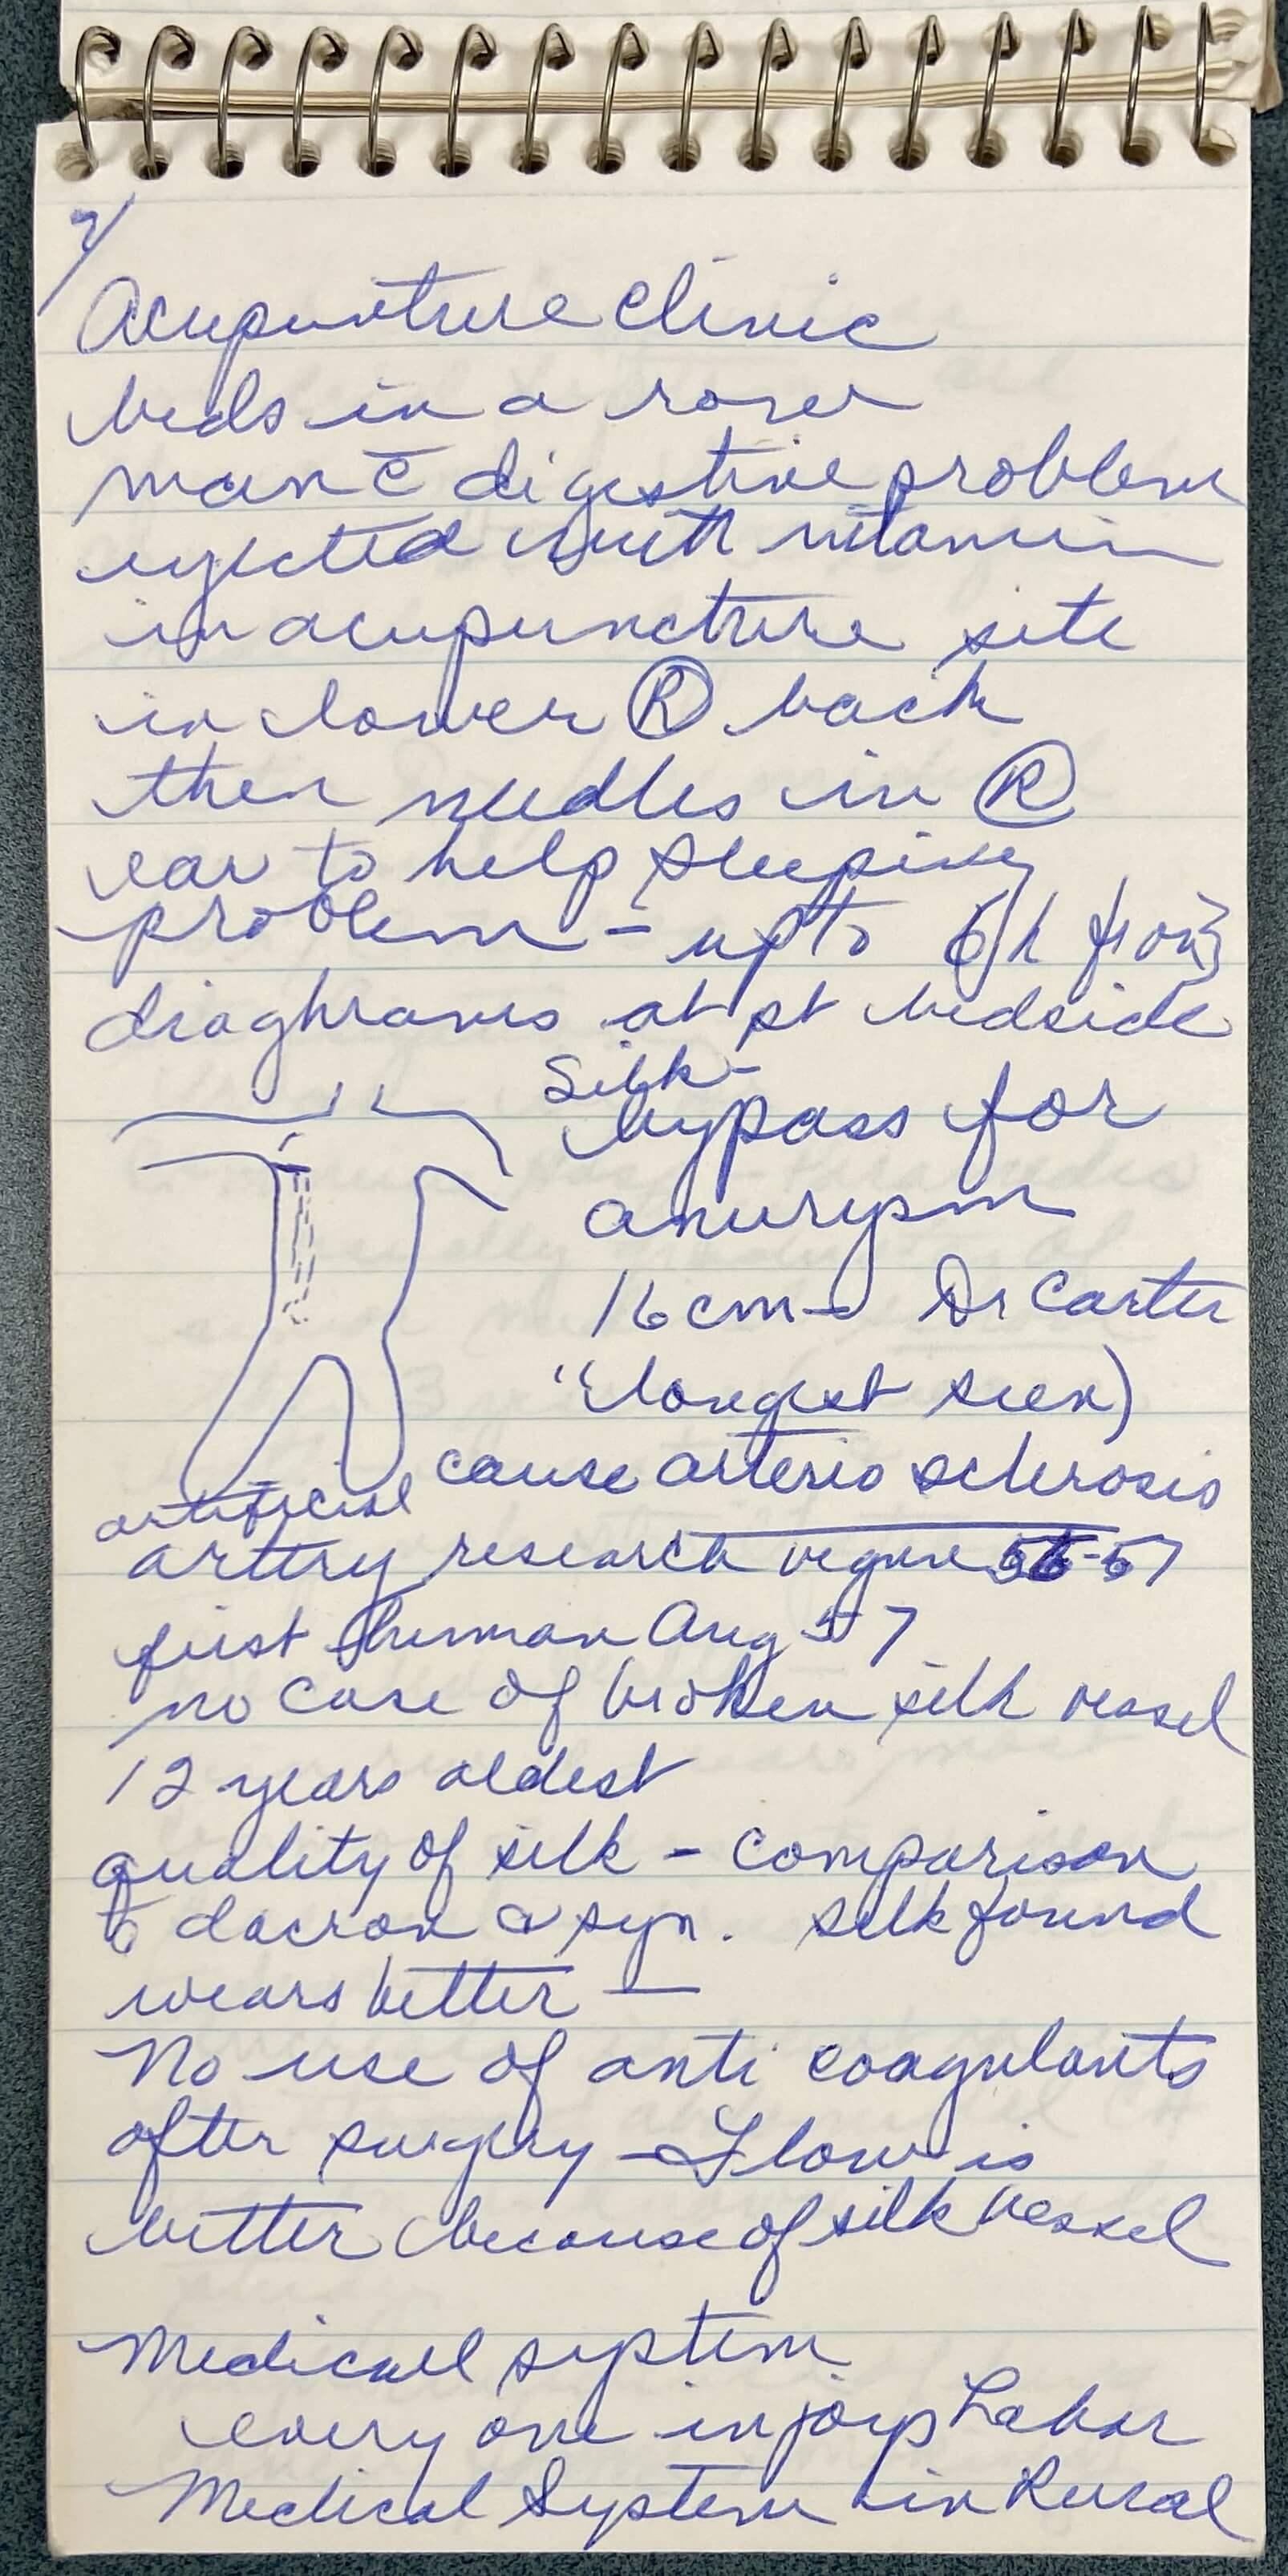 2/
Acupunture clinic
beds in a row
man c̄ digestive problem
injected with vitamin
in acupuncture site
in lower Ⓡ back
then needles in Ⓡ
ear to help sleeping
problem - up to 6h from 3
diaghrams at pt bedside
Silk-
bypass for
anurysm
16 cm - Dr Carter
"(longest seen)
cause arterio sclerosis
artificial
artery research begun 56-57
first human Aug 57
no case of broken silk vessel
12 years oldest
quality of silk - comparison
to dacron & syn. silk found
wears better —
No use of anti coagulants
after surgery - Flow is
better because of silk vessel
Medical system
every one injoys Labor
Medical System in Rural